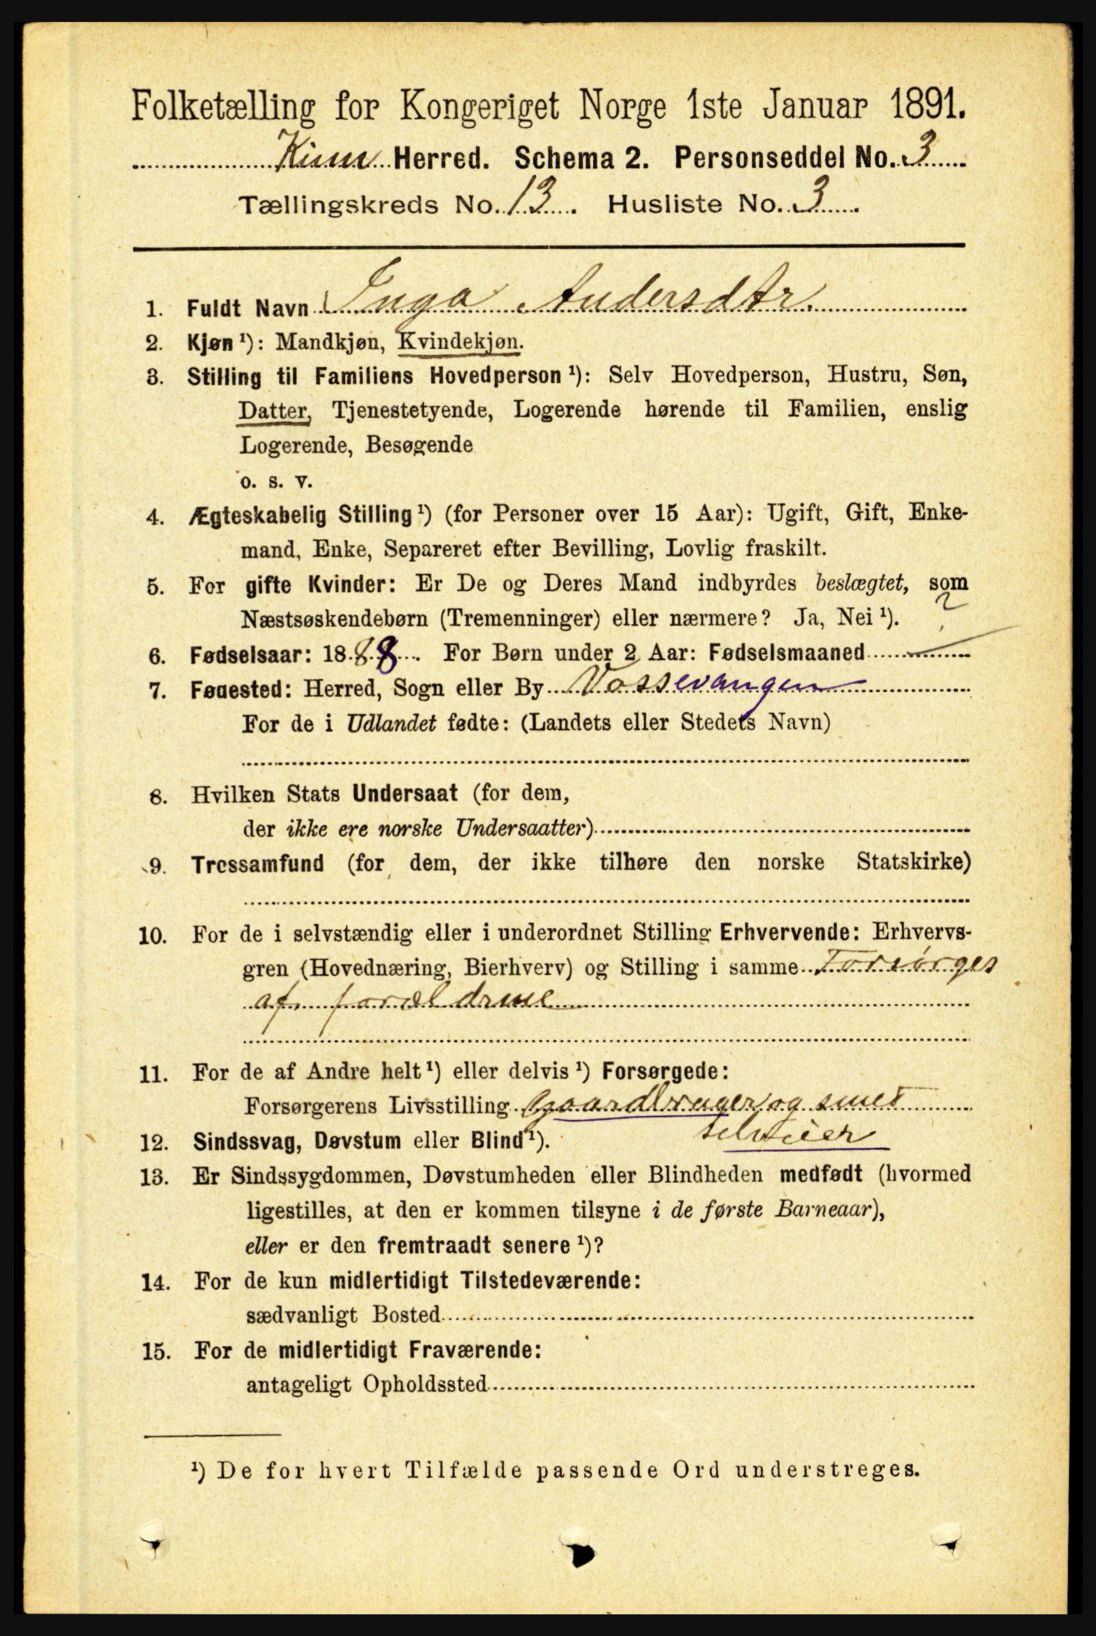 Folketælling for Kongeriget Norge 1ste Januar 1891.
Kinn Herred. Schema 2. Personseddel No. 3
Tællingskreds No. 13. Husliste No. 3.
1. Fuldt Navn Inga Andersdtr.
2. Kjøn ¹): Mandkjøn, Kvindekjøn.
3. Stilling til Familiens Hovedperson ¹): Selv Hovedperson, Hustru, Søn,
Datter, Tjenestetyende, Logerende hørende til Familien, enslig
Logerende, Besøgende
o. s. v.
4. Ægteskabelig Stilling ¹) (for Personer over 15 Aar): Ugift, Gift, Enke-
mand, Enke, Separeret efter Bevilling, Lovlig fraskilt.
5. For gifte Kvinder: Er De og Deres Mand indbyrdes beslægtet, som
Næstsøskendebørn (Tremenninger) eller nærmere? Ja, Nei ¹).
?
6. Fødselsaar: 1888. For Børn under 2 Aar: Fødselsmaaned
7. Føuested: Herred, Sogn eller By Vossevangen
For de i Udlandet fødte: (Landets eller Stedets Navn)
8. Hvilken Stats Undersaat (for dem,
der ikke ere norske Undersaatter)
9. Trossamfund (for dem, der ikke tilhøre den norske Statskirke)
10. For de i selvstændig eller i underordnet Stilling Erhvervende: Erhvervs-
gren (Hovednæring, Bierhverv) og Stilling i samme Forsørges
af forældrene
11. For de af Andre helt ¹) eller delvis ¹) Forsørgede:
Forsørgerens Livsstilling Gaardbruger og smet
selveier
12. Sindssvag, Døvstum eller Blind ¹).
13. Er Sindssygdommen, Døvstumheden eller Blindheden medfødt (hvormed
ligestilles, at den er kommen tilsyne i de første Barneaar),
eller er den fremtraadt senere ¹)?
14. For de kun midlertidigt Tilstedeværende:
sædvanligt Bosted
15. For de midlertidigt Fraværende:
antageligt Opholdssted
¹) De for hvert Tilfælde passende Ord understreges.